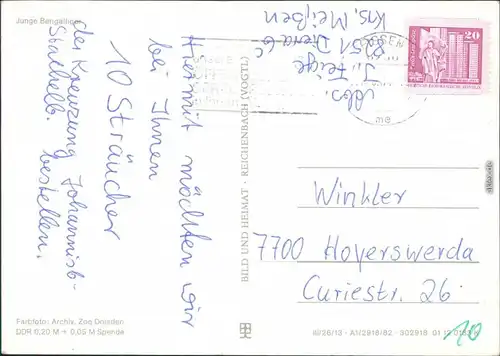 Junge Bengaltiger
Hiermit möchten wir
bei Ihnen
10 Sträucher
der Kreuzung Johannisb-
Stachelb. bestellen.
Abs.
J. Feige
8251
Krs. Meißen
20
BILD UND HEIMAT · REICHENBACH (VOGTL)
Winkler
7700 Hoyerswerda
Curiestr. 26
Farbfoto: Archiv, Zoo Dresden
DDR 0,20 M + 0,05 M Spende
III/26/13 · A1/2918/82 · 302918
10